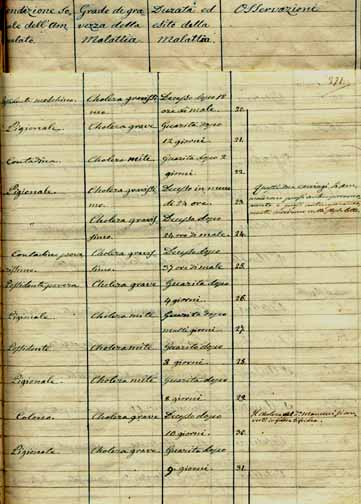 Condizione so- Grado di gra- Durata ed Osservazioni
ciale dell'Am- vezza della esito della
malato Malattia Malattia.
221.
Cholera gravissi- Decesso dopo 18
mo. ore di male 20.
Pigionale. Cholera grave Guarita dopo
12 giorni 21.
Contadina. Cholera mite Guarita dopo 2
giorni 22.
Pigionale. Cholera gravissi- Decesso in meno
mo. di 24 ore. 23. Questi due coniugi
" Cholera gravis- Decesso dopo
simo. 24 ore di male 24.
Contadina Cholera gravis- Decesso dopo
simo. 37 ore di male 25.
Possidente povera Cholera grave Guarita dopo
4 giorni 26.
Pigionale Cholera mite Guarita dopo
molti giorni 27.
Possidente Cholera mite Guarita dopo
8 giorni 28.
Pigionale. Cholera mite Guarita dopo
8 giorni 29.
Colono. Cholera grave Decesso dopo
10 giorni 30.
Pigionale Cholera grave Guarita dopo
9 giorni 31.